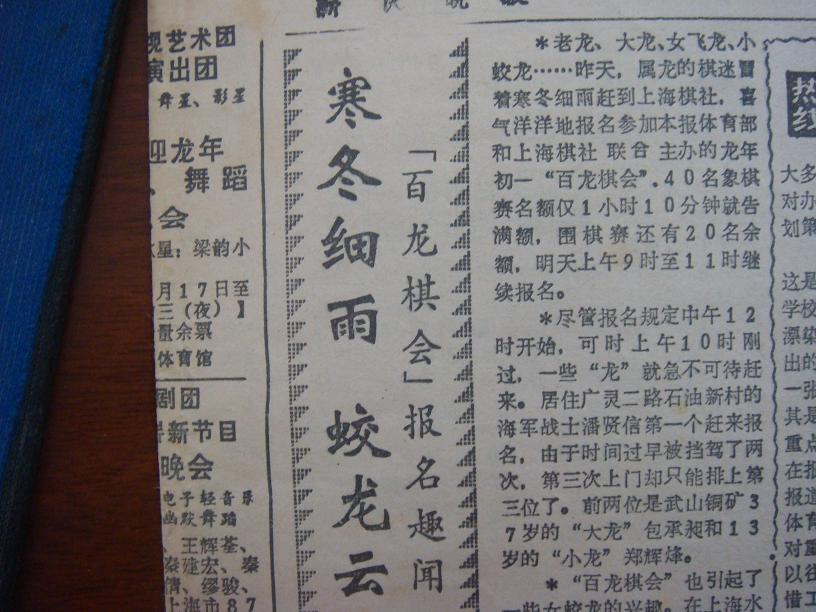 晚
视艺术团
演出团
舞星、影星
迎龙年
、舞蹈
会
星：梁韵小
月17日至
三（夜）】
量余票
体育馆
剧团
新节目
晚会
电子轻音乐
幽默舞蹈
、王辉荃、
秦建宏、秦
倩、缪骏、
上海市87
寒冬细雨 蛟龙云
「百龙棋会」报名趣闻
*老龙、大龙、女飞龙、小
蛟龙……昨天，属龙的棋迷冒
着寒冬细雨赶到上海棋社，喜
气洋洋地报名参加本报体育部
和上海棋社联合主办的龙年
初一“百龙棋会”.40名象棋
赛名额仅1小时10分钟就告
满额，围棋赛还有20名余
额，明天上午9时至11时继
续报名。
*尽管报名规定中午12
时开始，可时上午10时刚
过，一些“龙”就急不可待赶
来。居住广灵二路石油新村的
海军战士潘贤信第一个赶来报
名，由于时间过早被挡驾了两
次，第三次上门却只能排上第
三位了。前两位是武山铜矿3
7岁的“大龙”包承昶和13
岁的“小龙”郑辉烽。
*“百龙棋会”也引起了
一些女蛟龙的兴趣。在上海水
热
线
大多
对办
划策
这是
学校
漂染
出的
一张
其是
重点
在报
报道
体育
对重
以往
惜工